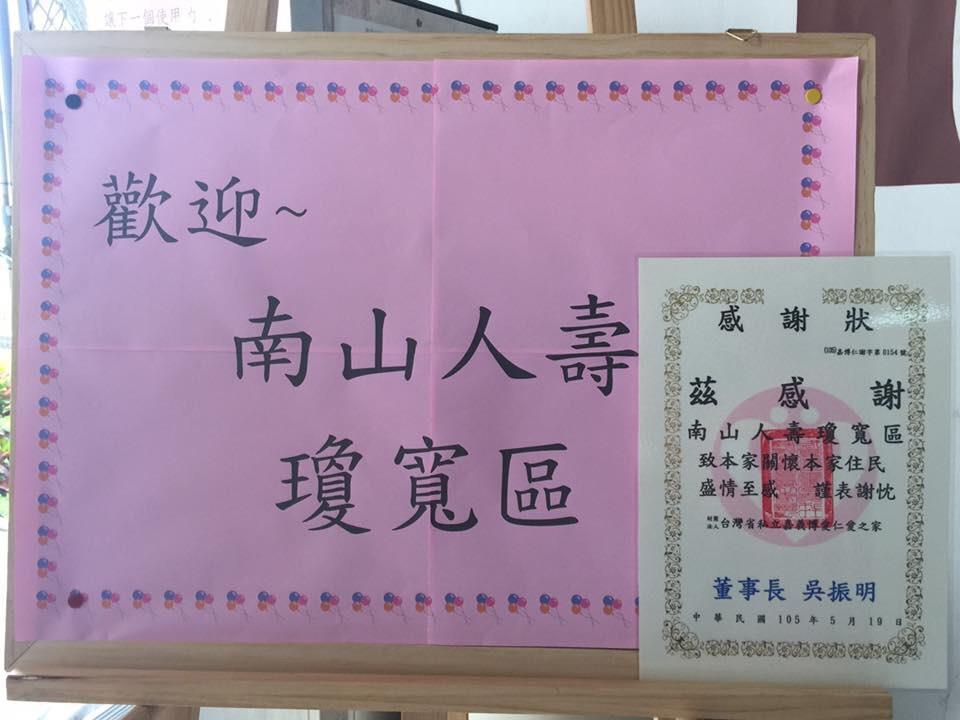 讓下一個使用
歡迎~
南山人壽
瓊寬區
感謝狀
(105)嘉博仁謝字第0154號
茲感謝
南山人壽瓊寬區
致本家關懷本家住民
盛情至感 謹表謝忱
財團法人台灣省私立嘉義博愛仁愛之家
董事長 吳振明
中華民國105年5月19日